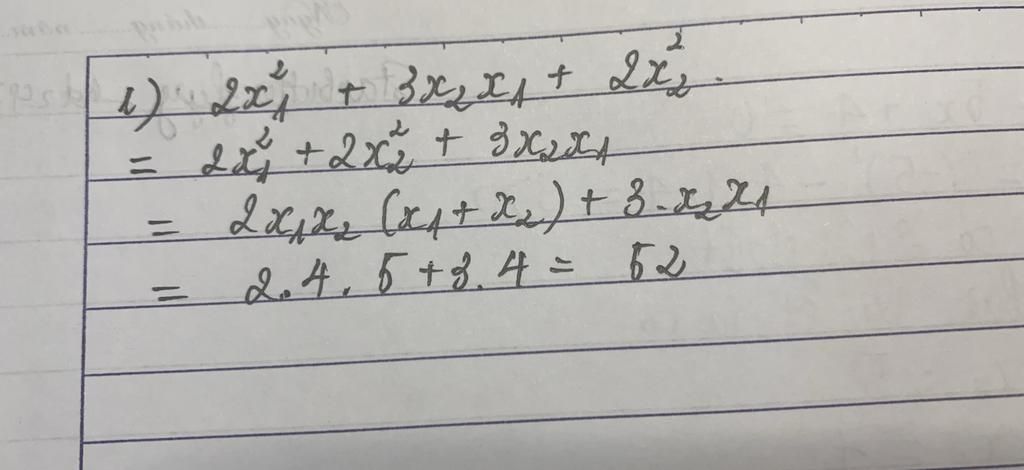 i) 2x₁² + 3x₂x₁ + 2x₂².
= 2x₁² + 2x₂² + 3x₂x₁
= 2x₁x₂ (x₁ + x₂) + 3.x₂x₁
= 2.4.5 + 3.4 = 52